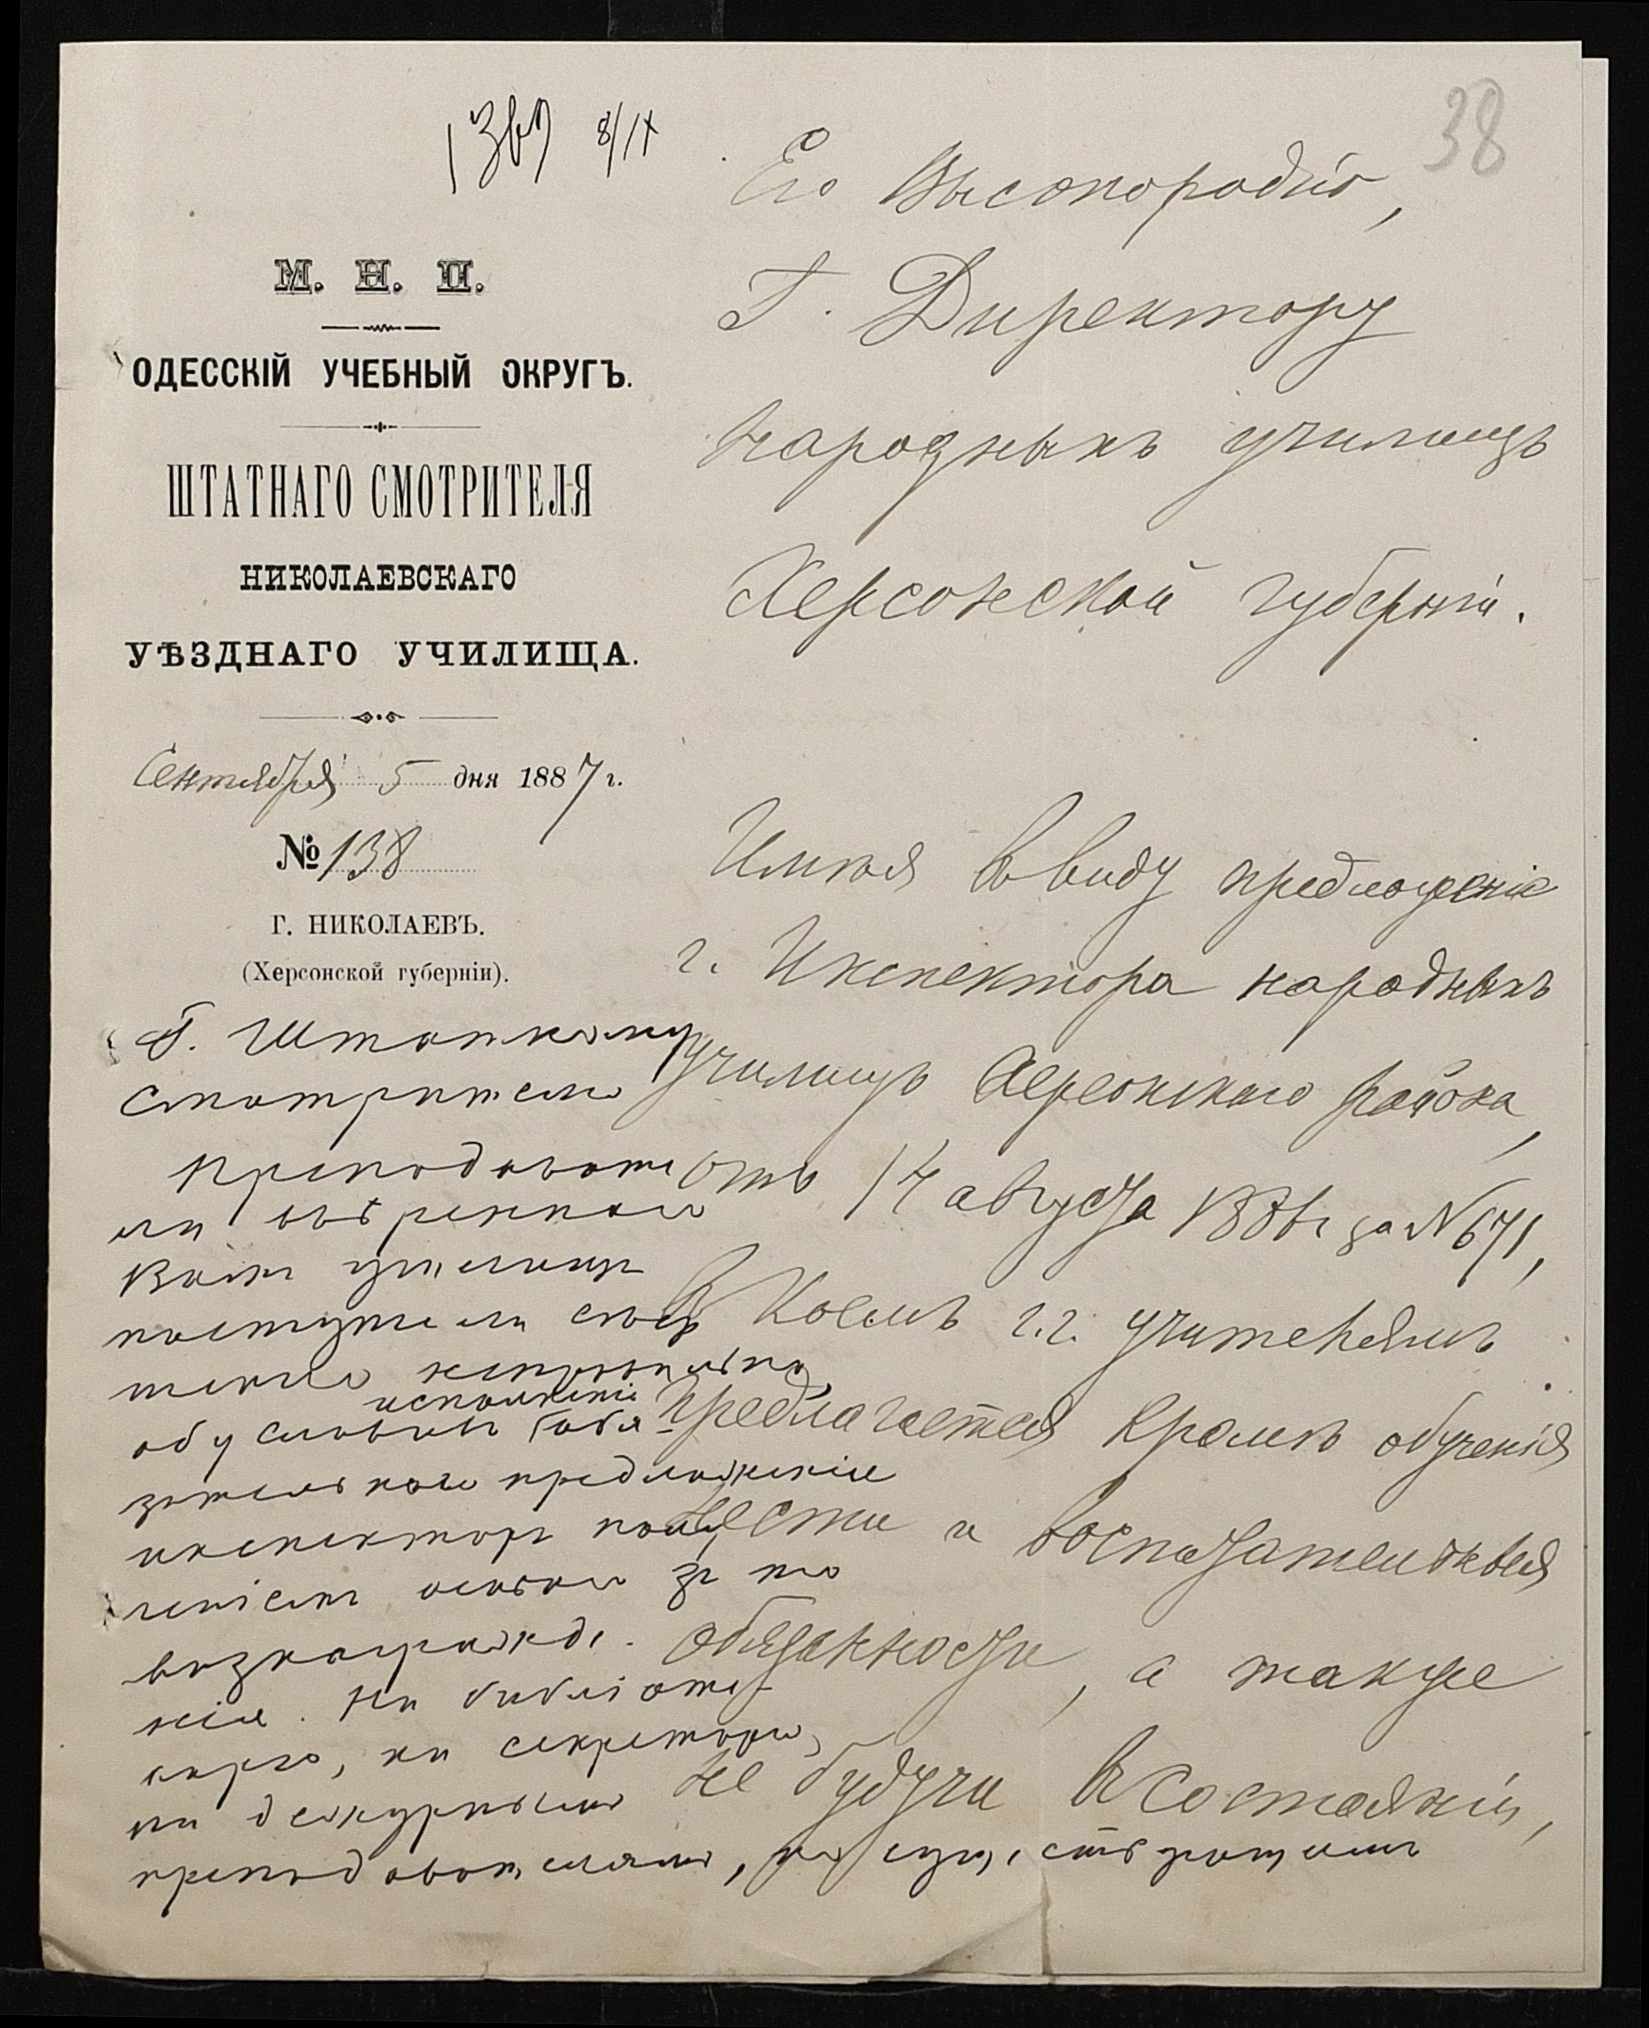 1367 8/IX
38
М. Н. П.
ОДЕССКІЙ УЧЕБНЫЙ ОКРУГЪ.
ШТАТНАГО СМОТРИТЕЛЯ
НИКОЛАЕВСКАГО
УѢЗДНАГО УЧИЛИЩА.
Сентября 5 дня 1887 г.
№ 138
Г. НИКОЛАЕВЪ.
(Херсонской губерніи).
Его Высокородію,
Г. Директору
народныхъ училищъ
Херсонской губерніи.
Имѣя ввиду предложеніе
г. Инспектора народныхъ
училищъ Херсонскаго района,
отъ 14 августа за № 671,
въ коемъ г.г. учителямъ
предлагается кромѣ обученія
нести и воспитательныя
обязанности, а также
не будучи въ состояніи,
Г. Штатному
смотрителю
Преподавате
ли ввѣреннаго
Вамъ училища
поступили
неправильно
исполненіе
обя
зательнаго предложенія
инспектора
вознагражде
нія. Ни библіоте
каря, ни секретаря,
ни дежурными
преподавателями,